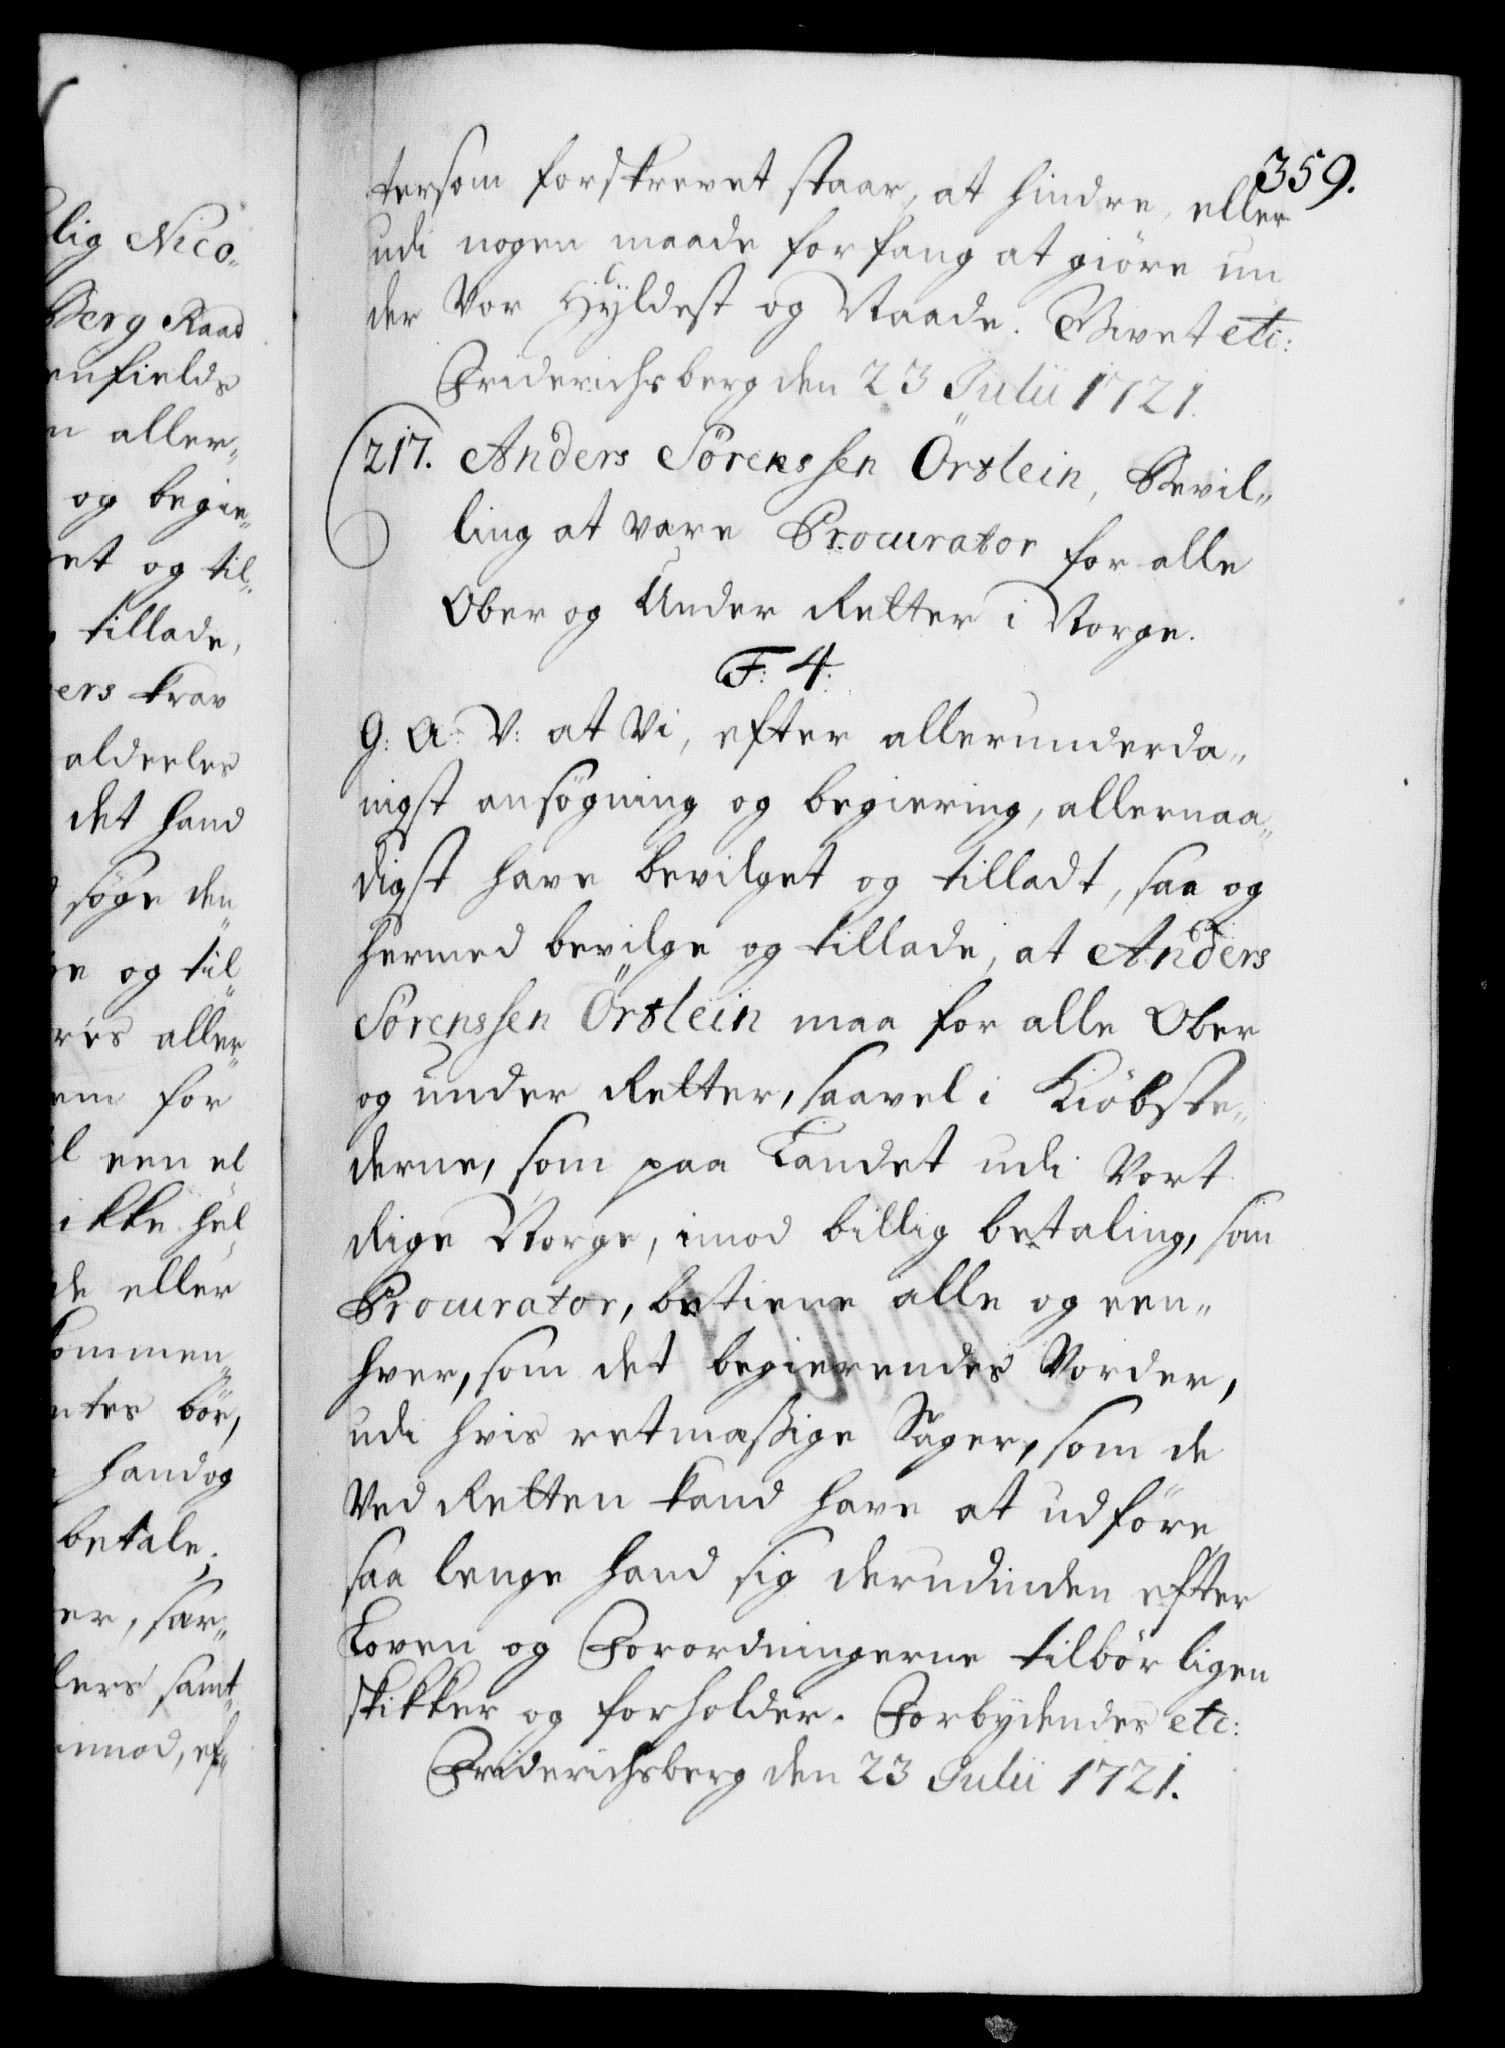 lig Nico„
Berg Raad
enfields
n aller„
og begie„
et og til„
tillade,
ers krav
aldeeles
det hand
søge den
ge og til„
res aller„
em for
l een el
ikke hel
de eller
kommen„
ntes bör,
hand og
betale,
er, sær„
lers samt„
imod, ef„
359.
tersom forskrevet staar, at hindre, eller
udi nogen maade forfang at giöre un
der Vor Hÿldest og Naade. Givet etc:
Friderichsberg den 23 Julii 1721.
217. Anders Sörenssen Örslein, Bevil„
ling at være Procurator for alle
Ober og Under Retter i Norge.
F: 4.
G: A: V: at Vi, efter allerunderda„
nigst ansögning og begiering, allernaa„
digst have bevilget og tilladt, saa og
hermed bevilge og tillade, at Anders
Sörenssen Örslein maa for alle Ober
og under Retter, saavel i Kiöbste„
derne, som paa Landet udi Vort
Rige Norge, imod billig betaling, som
Procurator, betiene alle og een„
hver, som det begierendes Vorder,
udi hvis retmæßige Sager, som de
Ved Retten kand have at udföre,
saa lenge hand sig derudinden efter
Loven og Forordningerne tilbörligen
skikker og forholder. Forbydendes etc:
Friderichsberg den 23 Julii 1721.